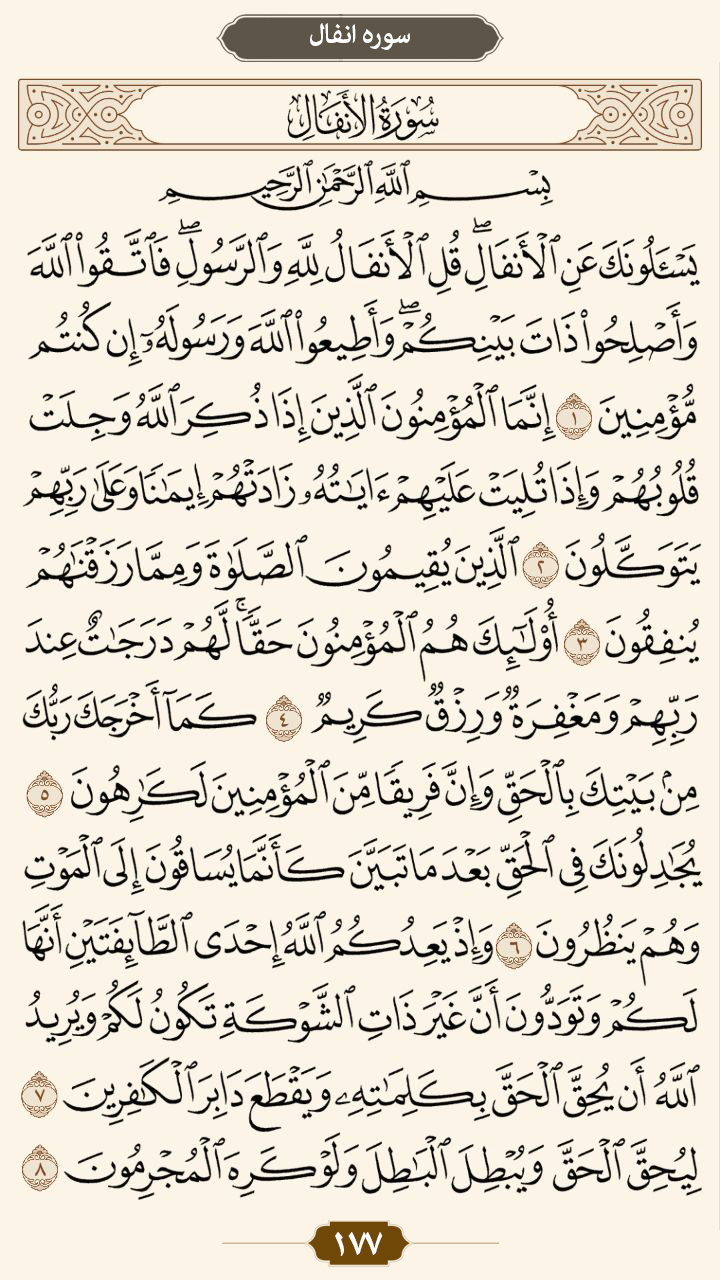 سوره انفال
سُورَةُ الأَنفَالِ
بِسْمِ ٱللَّهِ ٱلرَّحْمَٰنِ ٱلرَّحِيمِ
يَسْـَٔلُونَكَ عَنِ ٱلْأَنفَالِۖ قُلِ ٱلْأَنفَالُ لِلَّهِ وَٱلرَّسُولِۖ فَٱتَّقُوا۟ ٱللَّهَ
وَأَصْلِحُوا۟ ذَاتَ بَيْنِكُمْۖ وَأَطِيعُوا۟ ٱللَّهَ وَرَسُولَهُۥٓ إِن كُنتُم
مُّؤْمِنِينَ ١ إِنَّمَا ٱلْمُؤْمِنُونَ ٱلَّذِينَ إِذَا ذُكِرَ ٱللَّهُ وَجِلَتْ
قُلُوبُهُمْ وَإِذَا تُلِيَتْ عَلَيْهِمْ ءَايَٰتُهُۥ زَادَتْهُمْ إِيمَٰنًا وَعَلَىٰ رَبِّهِمْ
يَتَوَكَّلُونَ ٢ ٱلَّذِينَ يُقِيمُونَ ٱلصَّلَوٰةَ وَمِمَّا رَزَقْنَٰهُمْ
يُنفِقُونَ ٣ أُو۟لَٰٓئِكَ هُمُ ٱلْمُؤْمِنُونَ حَقًّاۚ لَّهُمْ دَرَجَٰتٌ عِندَ
رَبِّهِمْ وَمَغْفِرَةٌ وَرِزْقٌ كَرِيمٌ ٤ كَمَآ أَخْرَجَكَ رَبُّكَ
مِنۢ بَيْتِكَ بِٱلْحَقِّ وَإِنَّ فَرِيقًا مِّنَ ٱلْمُؤْمِنِينَ لَكَٰرِهُونَ ٥
يُجَٰدِلُونَكَ فِى ٱلْحَقِّ بَعْدَ مَا تَبَيَّنَ كَأَنَّمَا يُسَاقُونَ إِلَى ٱلْمَوْتِ
وَهُمْ يَنظُرُونَ ٦ وَإِذْ يَعِدُكُمُ ٱللَّهُ إِحْدَى ٱلطَّآئِفَتَيْنِ أَنَّهَا
لَكُمْ وَتَوَدُّونَ أَنَّ غَيْرَ ذَاتِ ٱلشَّوْكَةِ تَكُونُ لَكُمْ وَيُرِيدُ
ٱللَّهُ أَن يُحِقَّ ٱلْحَقَّ بِكَلِمَٰتِهِۦ وَيَقْطَعَ دَابِرَ ٱلْكَٰفِرِينَ ٧
لِيُحِقَّ ٱلْحَقَّ وَيُبْطِلَ ٱلْبَٰطِلَ وَلَوْ كَرِهَ ٱلْمُجْرِمُونَ ٨
١٧٧